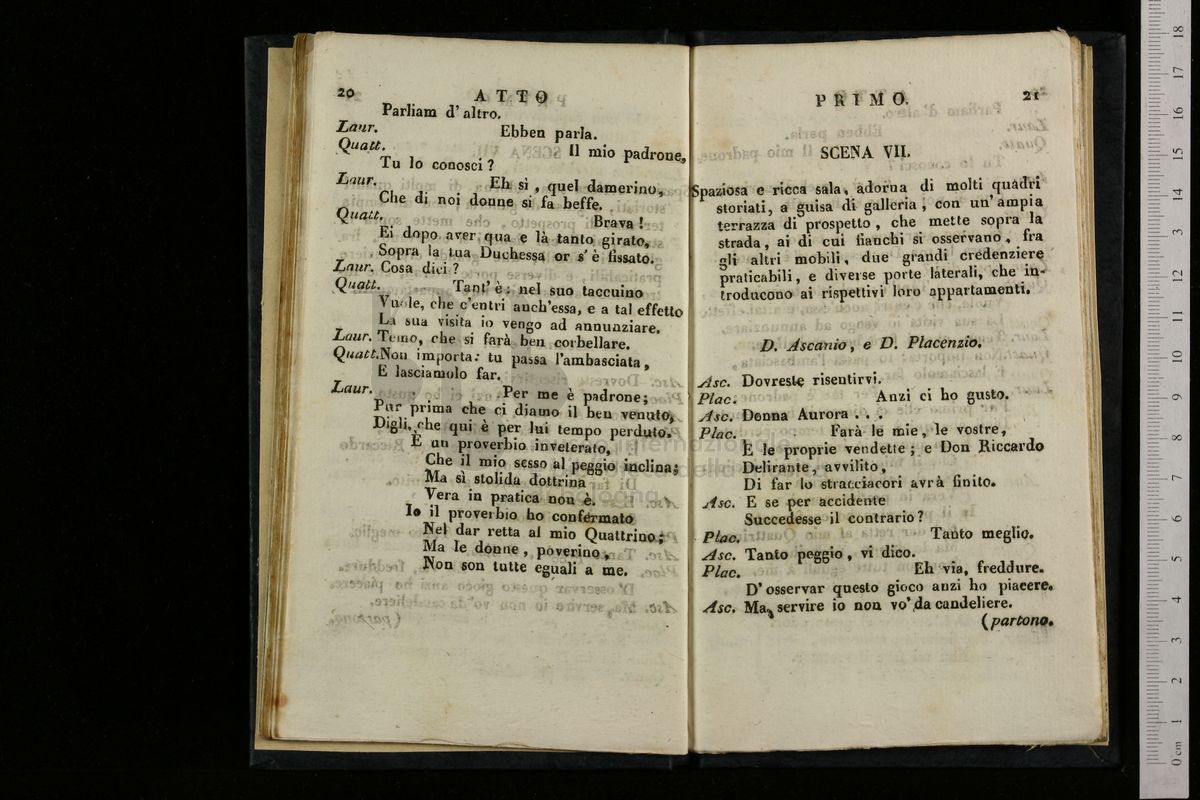 20 ATTO
Parliam d'altro.
Laur. Ebben parla.
Quatt. Il mio padrone,
Tu lo conosci?
Laur. Eh sì, quel damerino,
Che di noi donne si fa beffe.
Quatt. Brava!
Ei dopo aver qua e là tanto girato,
Sopra la tua Duchessa or s'è fissato.
Laur. Cosa dici?
Quatt. Tant'è: nel suo taccuino
Vuole, che c'entri anch'essa, e a tal effetto
La sua visita io vengo ad annunziare.
Laur. Temo, che si farà ben corbellare.
Quatt. Non importa: tu passa l'ambasciata,
E lasciamolo far.
Laur. Per me è padrone;
Pur prima che ci diamo il ben venuto,
Digli, che qui è per lui tempo perduto.
È un proverbio inveterato,
Che il mio sesso al peggio inclina;
Ma sì stolida dottrina
Vera in pratica non è.
Io il proverbio ho confermato
Nel dar retta al mio Quattrino;
Ma le donne, poverino,
Non son tutte eguali a me.
PRIMO. 21
SCENA VII.
Spaziosa e ricca sala, adorna di molti quadri
storiati, a guisa di galleria, con un'ampia
terrazza di prospetto, che mette sopra la
strada, ai di cui fianchi si osservano, fra
gli altri mobili, due grandi credenziere
praticabili, e diverse porte laterali, che in-
troducono ai rispettivi loro appartamenti.
D. Ascanio, e D. Placenzio.
Asc. Dovreste risentirvi.
Plac. Anzi ci ho gusto.
Asc. Donna Aurora . . .
Plac. Farà le mie, le vostre,
E le proprie vendette; e Don Riccardo
Delirante, avvilito,
Di far lo stracciacori avrà finito.
Asc. E se per accidente
Succedesse il contrario?
Plac. Tanto meglio.
Asc. Tanto peggio, vi dico.
Plac. Eh via, freddure.
D'osservar questo gioco anzi ho piacere.
Asc. Ma, servire io non vo' da candeliere.
(partono.
0 cm 1 2 3 4 5 6 7 8 9 10 11 12 13 14 15 16 17 18